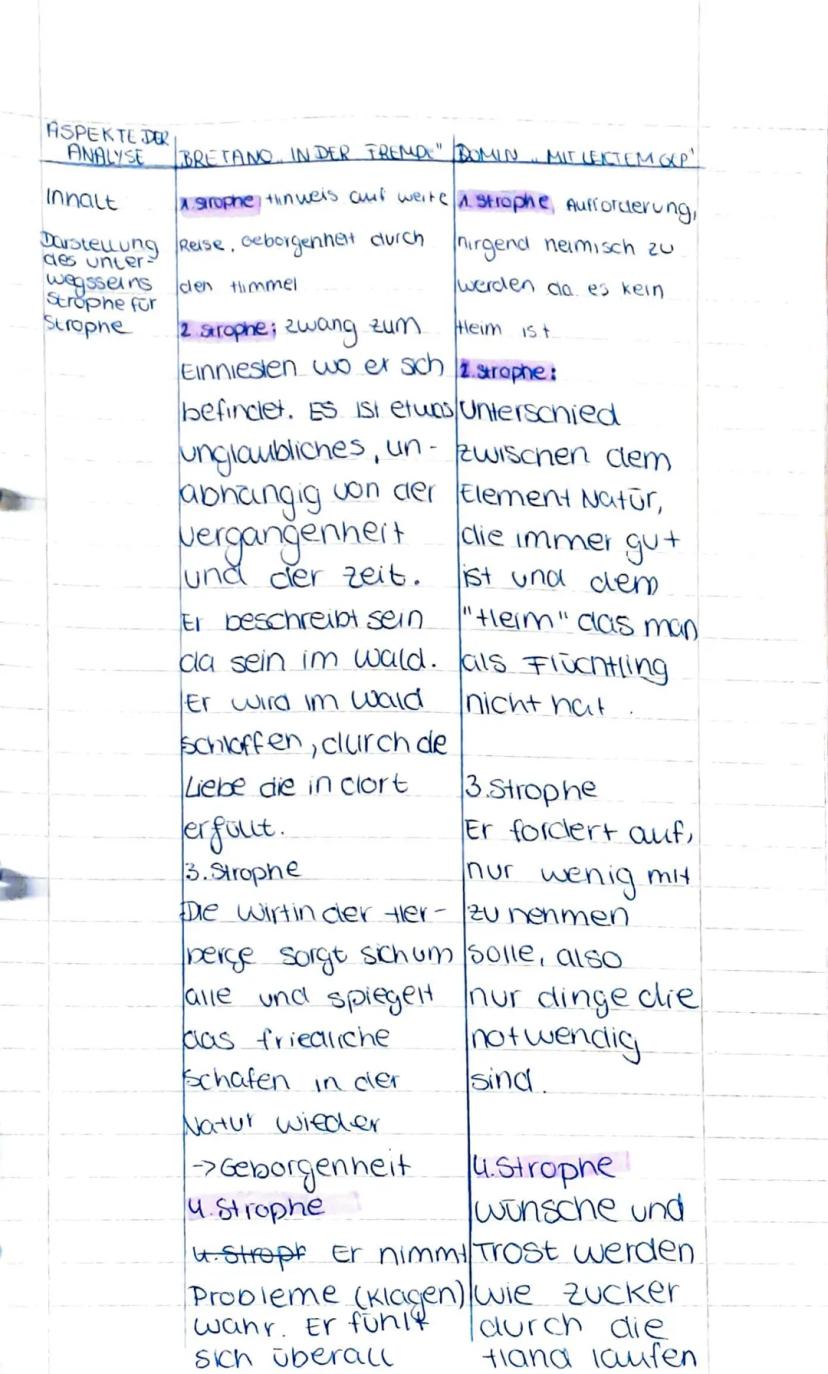 ASPEKTE DER
ANALYSE
BRETANO „IN DER FREMDE"
DOMIN „MIT LEKTEM GEP"
Inhalt
Darstellung
des unter-
wegsseins
Strophe für
Strophe
1. Strophe Hinweis auf weite
Reise, Geborgenheit durch
den Himmel
2. Strophe: Zwang zum
Einniesten wo er sch
befindet. ES ist etwas
unglaubliches, un-
abhängig von der
vergangenheit
und der zeit.
Er beschreibt sein
da sein im wald.
Er wird im wald
schlaffen, durch de
Liebe die in dort
erfüllt.
3. Strophe
Die wirtin der Her-
berge sorgt sich um
alle und spiegelt
das friedliche
schafen in der
Natur wieder
-> Geborgenheit
4. Strophe
Er nimmt
Probleme (Klagen)
wahr. Er fühlt
sich überall
1. Strophe, Aufforderung,
nirgend heimisch zu
werden da es kein
Heim ist
2. Strophe:
Unterschied
zwischen dem
Element Natur,
die immer gut
ist und dem
"Heim" das man
als Flüchtling
nicht hat.
3. Strophe
Er fordert auf,
nur wenig mit
zu nehmen
solle, also
nur dinge die
notwendig
sind.
4. Strophe
wünsche und
Trost werden
wie zucker
durch die
Hand laufen